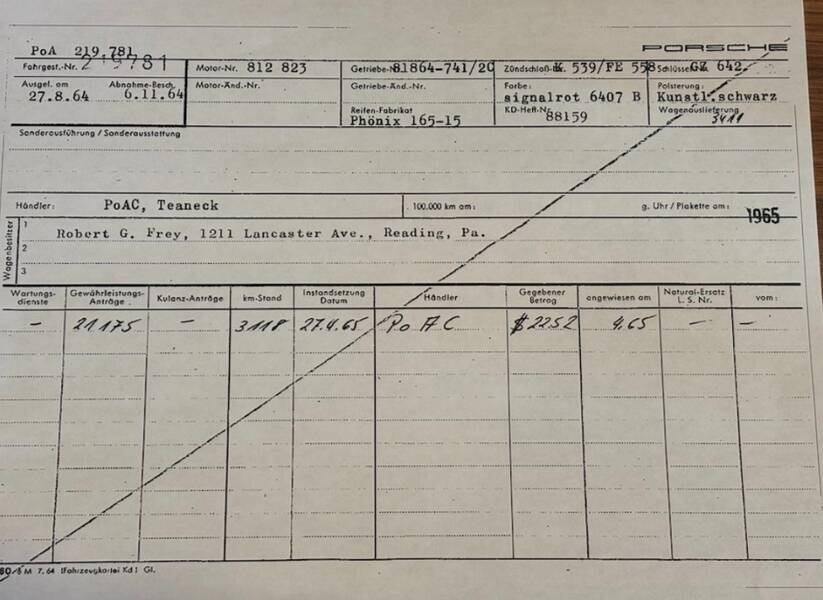 PoA 219.781
PORSCHE
Fahrgest.-Nr. 219781 Motor-Nr. 812 823 Getriebe-Nr. 81864-741/2C Zündschloß-Nr. K 539/FE 558 Schlüssel-Nr. GZ 642.
Ausgel. am Abnahme-Besch. Motor-Änd.-Nr. Getriebe-Änd.-Nr. Farbe: Polsterung:
27.8.64 6.11.64 signalrot 6407 B Kunstl.schwarz
Reifen-Fabrikat KD-Heft-Nr. Wagenauslieferung
Phönix 165-15 88159 3411
Sonderausführung / Sonderausstattung
Händler: PoAC, Teaneck 100.000 km am: g. Uhr / Plakette am: 1965
Wagenbesitzer
1 Robert G. Frey, 1211 Lancaster Ave., Reading, Pa.
2
3
Wartungs- Gewährleistungs- Kulanz-Anträge km-Stand Instandsetzung Händler Gegebener angewiesen am Natural-Ersatz vom:
dienste Anträge Datum Betrag L. S. Nr.
— 21175 — 3118 27.4.65 Po A C $ 2252 4.65 — —
80/8 M 7.64 (Fahrzeugkartei Kd) Gl.